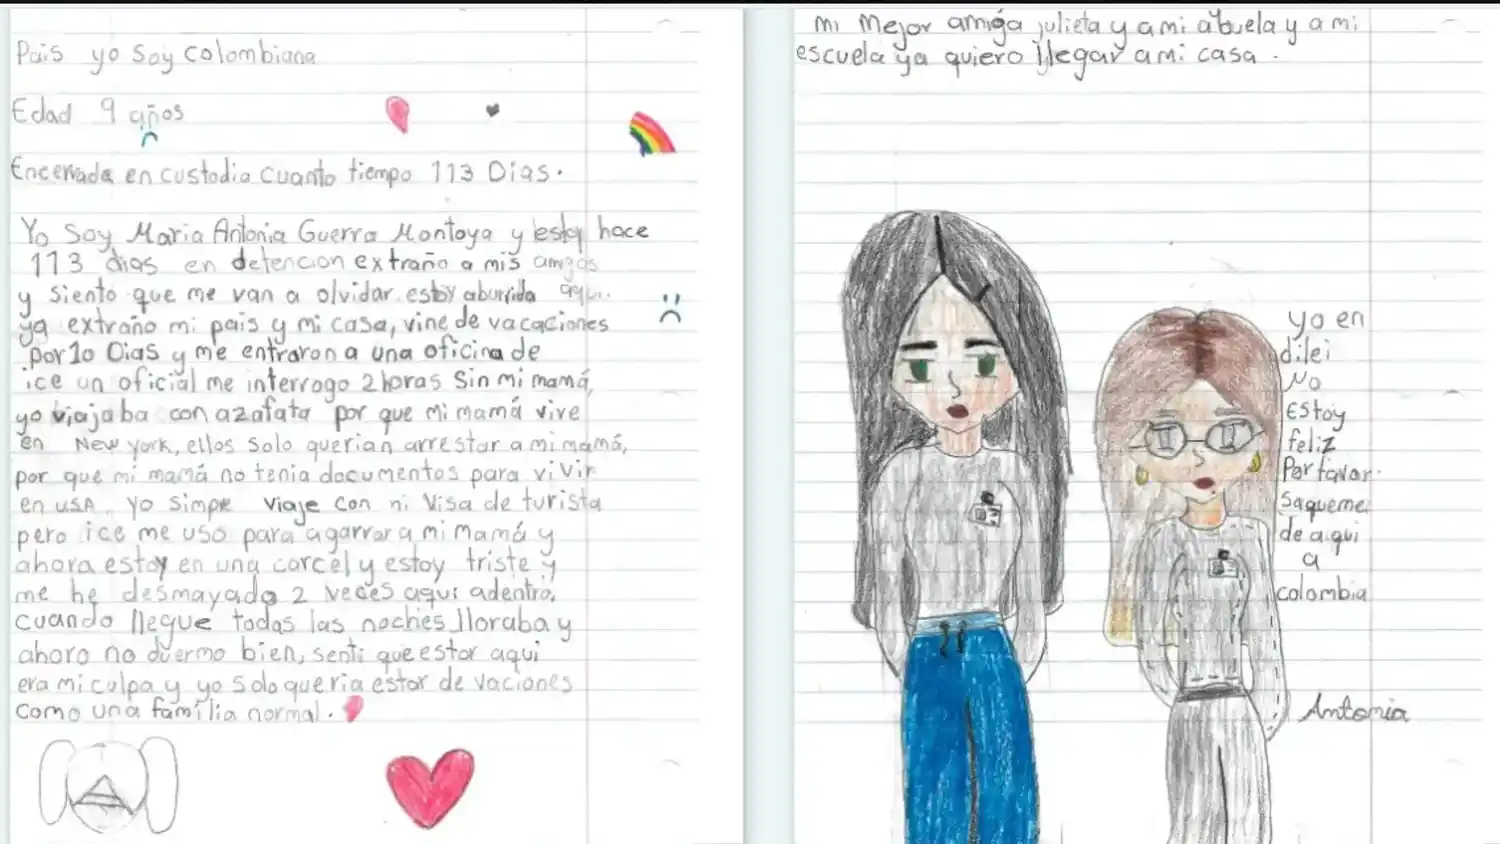 Pais yo soy colombiana
Edad 9 años
Encerrada en custodia cuanto tiempo 113 Dias.
Yo soy Maria Antonia Guerra Montoya y estoy hace
113 dias en detencion extraño a mis amigos
y siento que me van a olvidar. estoy aburrida aqui.
ya extraño mi pais y mi casa, vine de vacaciones
por 10 Dias y me entraron a una oficina de
ice un oficial me interrogo 2 horas sin mi mamá,
yo viajaba con azafata por que mi mamá vive
en New york, ellos solo querian arrestar a mi mamá,
por que mi mamá no tenia documentos para vivir
en USA, yo simpe viaje con mi visa de turista
pero ice me uso para agarrar a mi mamá y
ahora estoy en una carcel y estoy triste y
me he desmayado 2 veces aqui adentro,
cuando llegue todas las noches lloraba y
ahora no duermo bien, senti que estar aqui
era mi culpa y yo solo queria estar de vaciones
como una familia normal.
mi mejor amiga julieta y a mi abuela y a mi
escuela ya quiero llegar a mi casa.
yo en
dilei
No
Estoy
feliz
Por favor.
saqueme
de aqui
a
colombia
Antonia